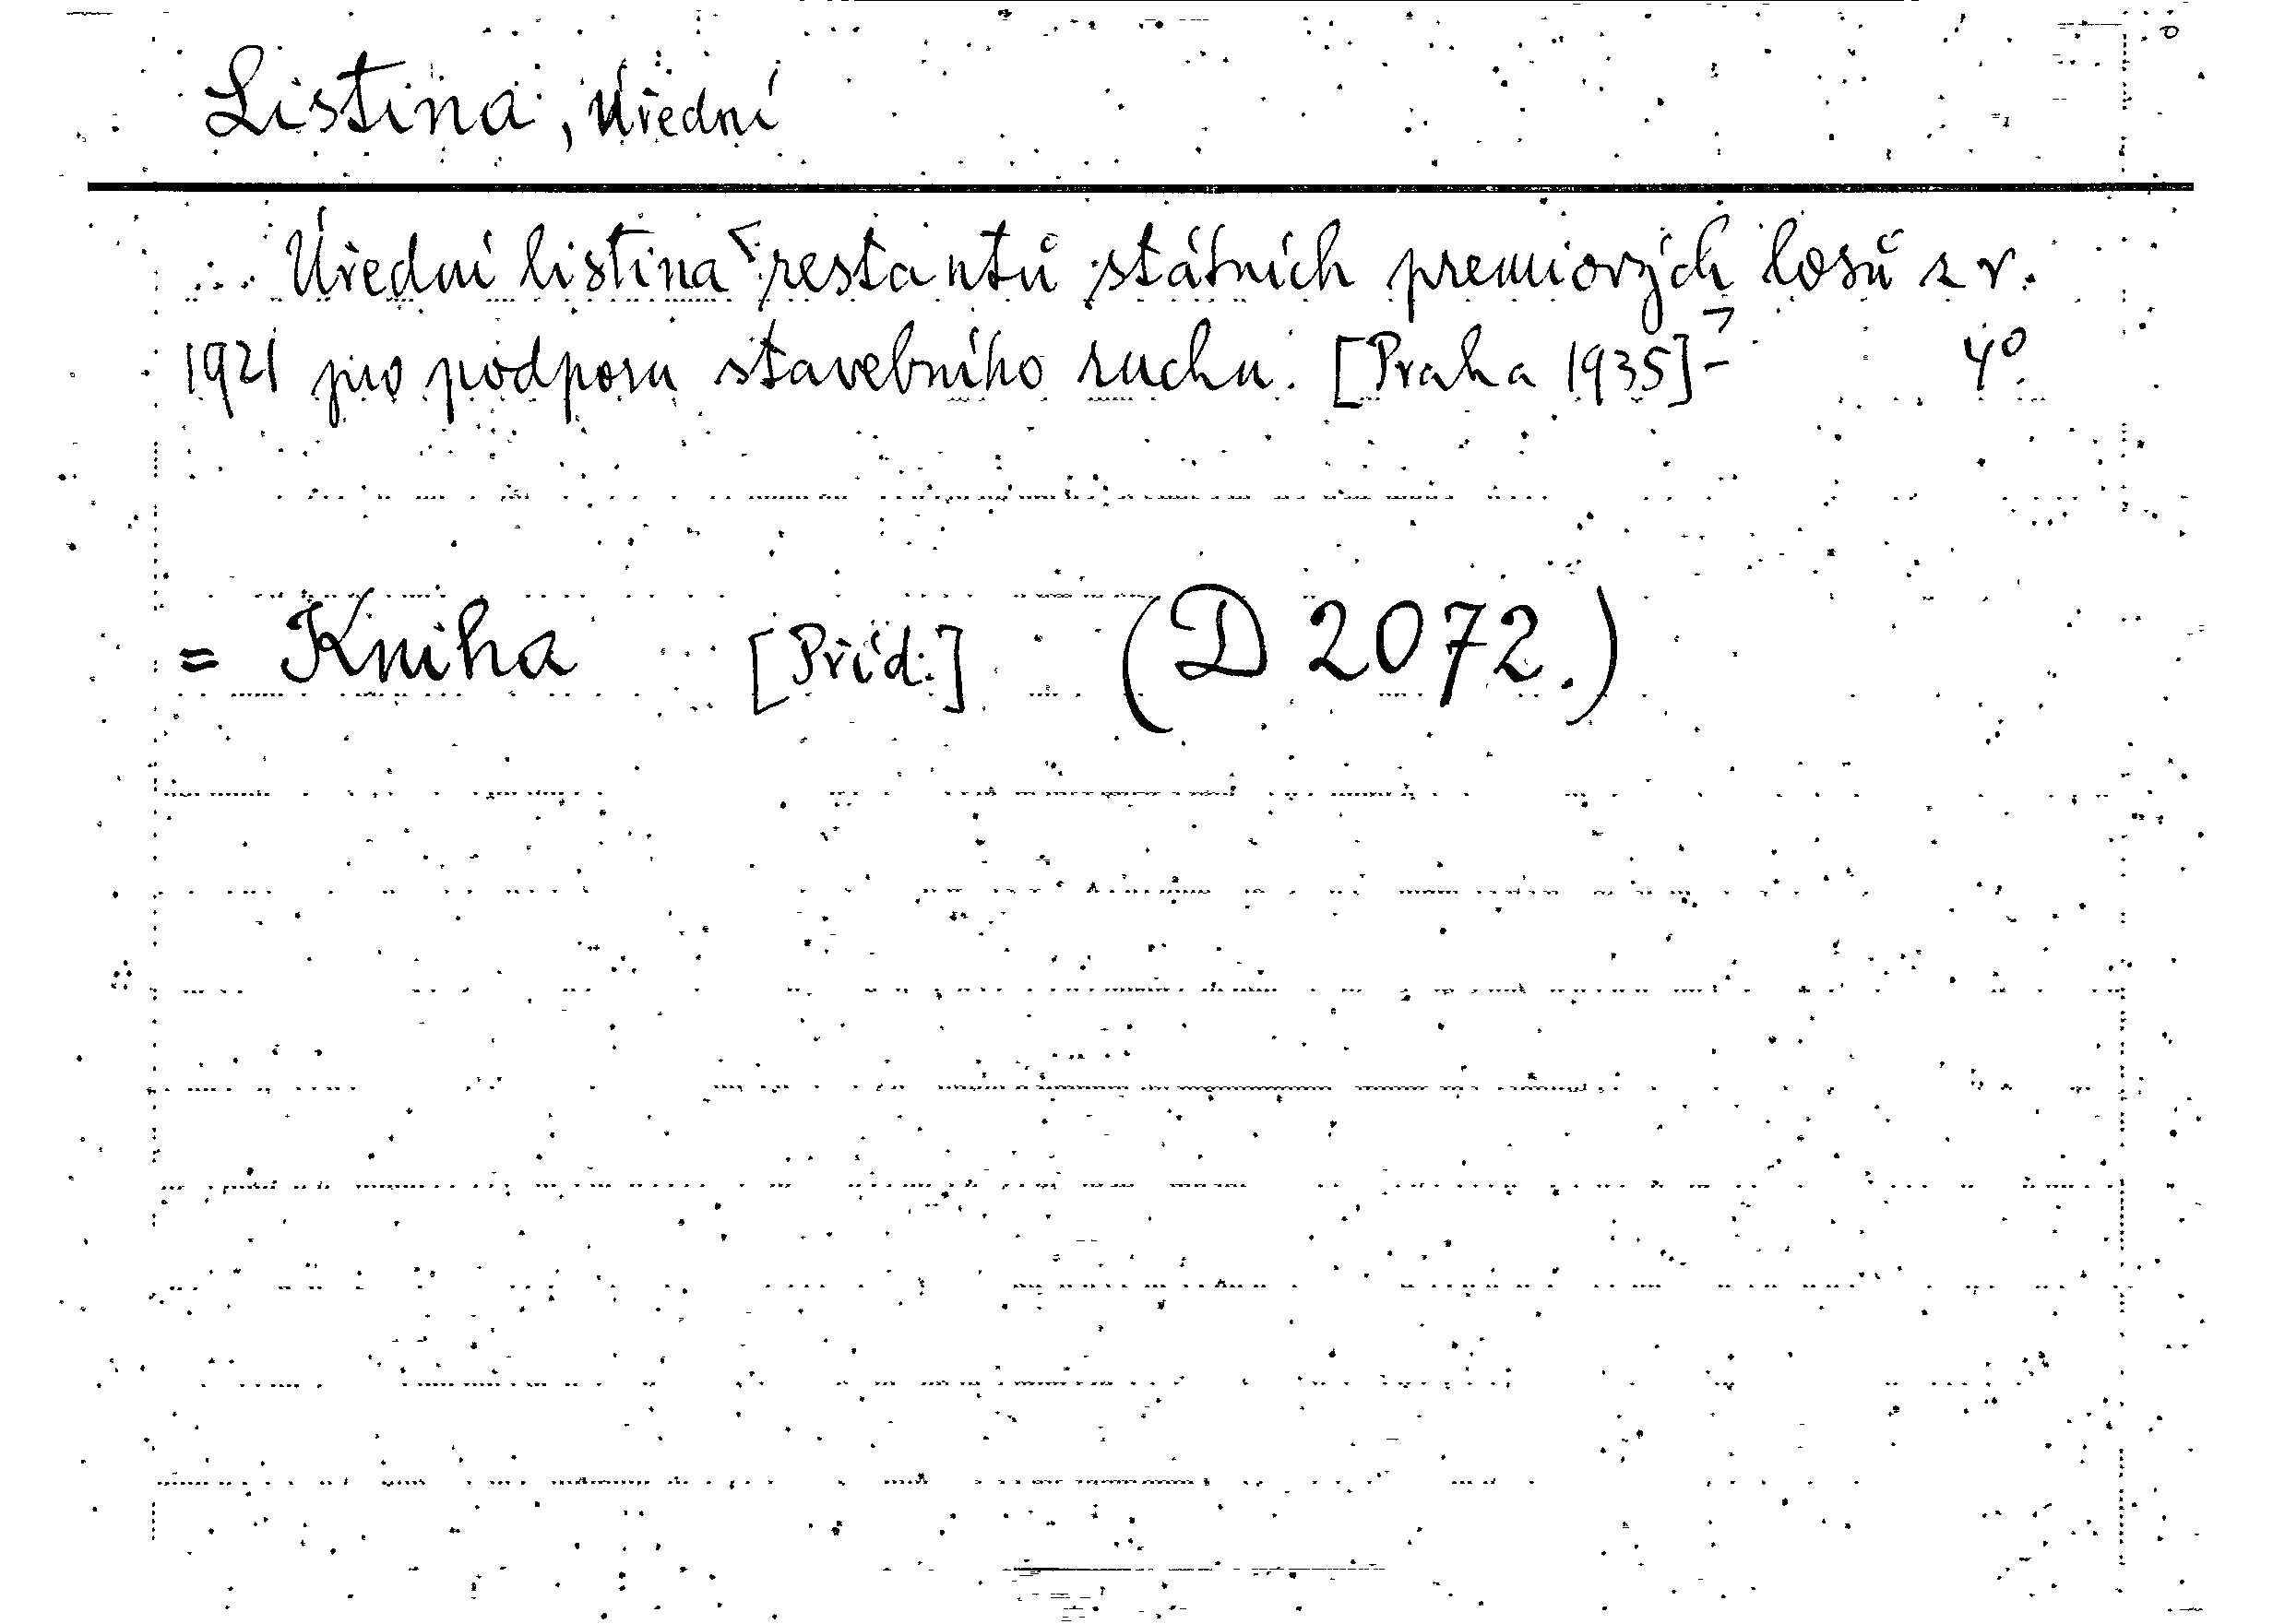 Listina, Úřední
Úřední listina restantů státních premiových losů z r.
1921 pro podporu stavebního ruchu. [Praha 1935]- 4°.
= Kniha [Příd.] (D 2072.)